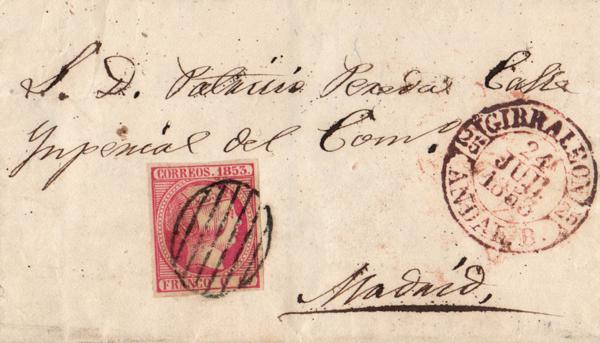 S. D. Patricio Pereda Calle
Ynperial del Com.º
CORREOS. 1853.
FRANCO 6
GIBRALEON
24
JUN
1853
ANDAL. B.
Madrid,